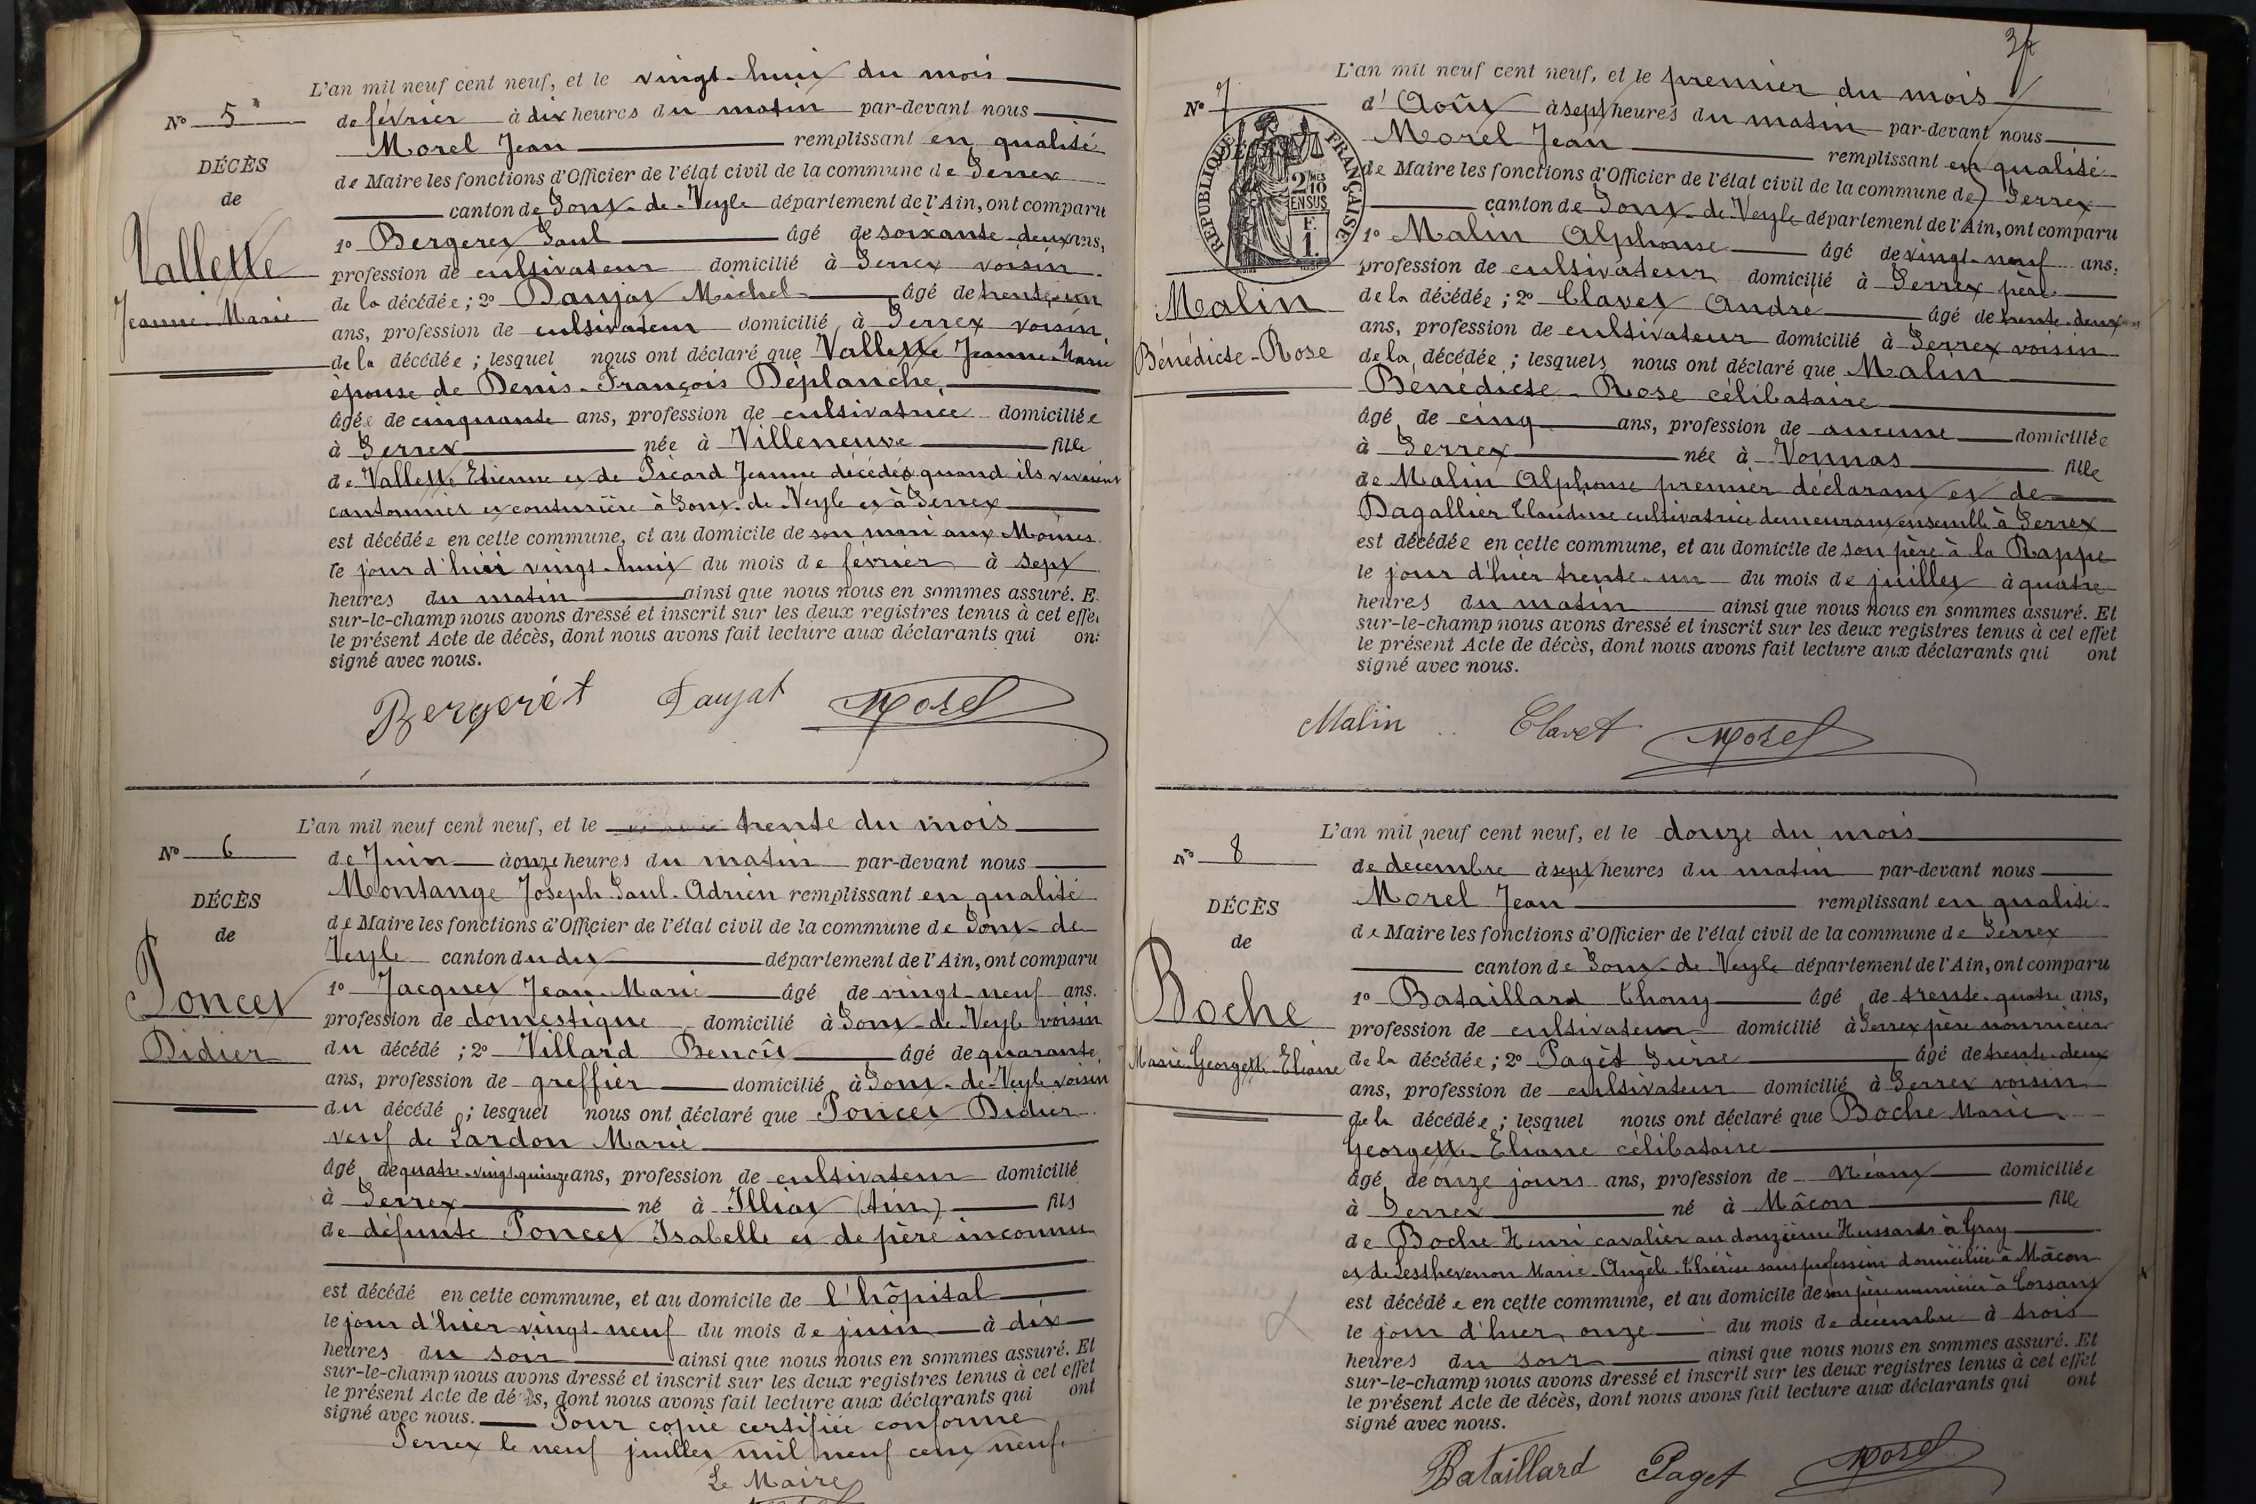 L'an mil neuf cent neuf, et le vingt-huit du mois
N° 5
de février à dix heures du matin par-devant nous
Morel Jean remplissant en qualité
DÉCÈS
de Maire les fonctions d'Officier de l'état civil de la commune de Perrex
de
canton de Pont-de-Veyle département de l'Ain, ont comparu
Vallette
1° Bergeret Paul âgé de soixante-deux ans,
profession de cultivateur domicilié à Perrex voisin
Jeanne-Marie
de la décédée ; 2° Daujat Michel âgé de trente-un
ans, profession de cultivateur domicilié à Perrex voisin
de la décédée ; lesquel nous ont déclaré que Vallette Jeanne-Marie
épouse de Denis-François Déplanche,
âgée de cinquante ans, profession de cultivatrice domiciliée
à Perrex née à Villeneuve fille
de Vallette Etienne et de Picard Jeanne décédés quand ils vivaient
cantonnier et couturière à Pont-de-Veyle et à Perrex
est décédée en cette commune, et au domicile de son mari aux Moines
le jour d'hui vingt-huit du mois de février à sept
heures du matin ainsi que nous nous en sommes assuré. E
sur-le-champ nous avons dressé et inscrit sur les deux registres tenus à cet effe
le présent Acte de décès, dont nous avons fait lecture aux déclarants qui on
signé avec nous.
Bergerét Daujat Morel
L'an mil neuf cent neuf, et le trente du mois
N° 6
de Juin à onze heures du matin par-devant nous
Montange Joseph-Paul-Adrien remplissant en qualité
DÉCÈS
de Maire les fonctions d'Officier de l'état civil de la commune de Pont-de
de
Veyle canton du dit département de l'Ain, ont comparu
Poncet
1° Jacquet Jean-Marie âgé de vingt-neuf ans.
profession de domestique domicilié à Pont-de-Veyle voisin
Didier
du décédé ; 2° Villard Benoît âgé de quarante
ans, profession de greffier domicilié à Pont-de-Veyle voisin
du décédé ; lesquel nous ont déclaré que Poncet Didier
veuf de Lardon Marie
âgé de quatre-vingt-quinze ans, profession de cultivateur domicilié
à Perrex né à Illiat (Ain) fils
de défunte Poncet Isabelle et de père inconnu
est décédé en cette commune, et au domicile de l'hôpital
le jour d'hier vingt-neuf du mois de juin à dix
heures du soir ainsi que nous nous en sommes assuré. Et
sur-le-champ nous avons dressé et inscrit sur les deux registres tenus à cet effet
le présent Acte de décès, dont nous avons fait lecture aux déclarants qui ont
signé avec nous. Pour copie certifiée conforme
Perrex le neuf juillet mil neuf cent neuf.
Le Maire
L'an mil neuf cent neuf, et le premier du mois
N° 7
d'Août à sept heures du matin par-devant nous
Morel Jean remplissant en qualité
RÉPUBLIQUE FRANÇAISE
2 MES 10 EN SUS
de Maire les fonctions d'Officier de l'état civil de la commune de Perrex
canton de Pont-de-Veyle département de l'Ain, ont comparu
1° Malin Alphonse âgé de vingt-neuf ans,
profession de cultivateur domicilié à Perrex père
Malin
de la décédée ; 2° Clavet André âgé de trente-deux
ans, profession de cultivateur domicilié à Perrex voisin
Bénédicte-Rose
de la décédée ; lesquels nous ont déclaré que Malin
Bénédicte-Rose célibataire
âgé de cinq ans, profession de aucune domiciliée
à Perrex née à Vonnas fille
de Malin Alphonse premier déclarant et de
Dagallier Claudine cultivatrice demeurant ensemble à Perrex
est décédée en cette commune, et au domicile de son père à la Rappe
le jour d'hier trente-un du mois de juillet à quatre
heures du matin ainsi que nous nous en sommes assuré. Et
sur-le-champ nous avons dressé et inscrit sur les deux registres tenus à cet effet
le présent Acte de décès, dont nous avons fait lecture aux déclarants qui ont
signé avec nous.
Malin Clavet Morel
L'an mil neuf cent neuf, et le douze du mois
N° 8
de décembre à sept heures du matin par-devant nous
Morel Jean remplissant en qualité
DÉCÈS
de Maire les fonctions d'Officier de l'état civil de la commune de Perrex
de
canton de Pont-de-Veyle département de l'Ain, ont comparu
Boche
1° Bataillard Thony âgé de trente-quatre ans,
profession de cultivateur domicilié à Perrex père nourricier
Marie-Georgette-Eliane
de la décédée ; 2° Paget Pierre âgé de trente-deux
ans, profession de cultivateur domicilié à Perrex voisin
de la décédée ; lesquel nous ont déclaré que Boche Marie
Georgette Eliane célibataire
âgé de onze jours ans, profession de Néant domiciliée
à Perrex né à Mâcon fille
de Boche Henri cavalier au douzième Hussards à Gray
et de Lesthevenon Marie-Angèle-Thérèse sans profession domiciliée à Mâcon
est décédée en cette commune, et au domicile de son père nourricier à Corsant
le jour d'hier onze du mois de décembre à trois
heures du soir ainsi que nous nous en sommes assuré. Et
sur-le-champ nous avons dressé et inscrit sur les deux registres tenus à cet effet
le présent Acte de décès, dont nous avons fait lecture aux déclarants qui ont
signé avec nous.
Bataillard Paget Morel